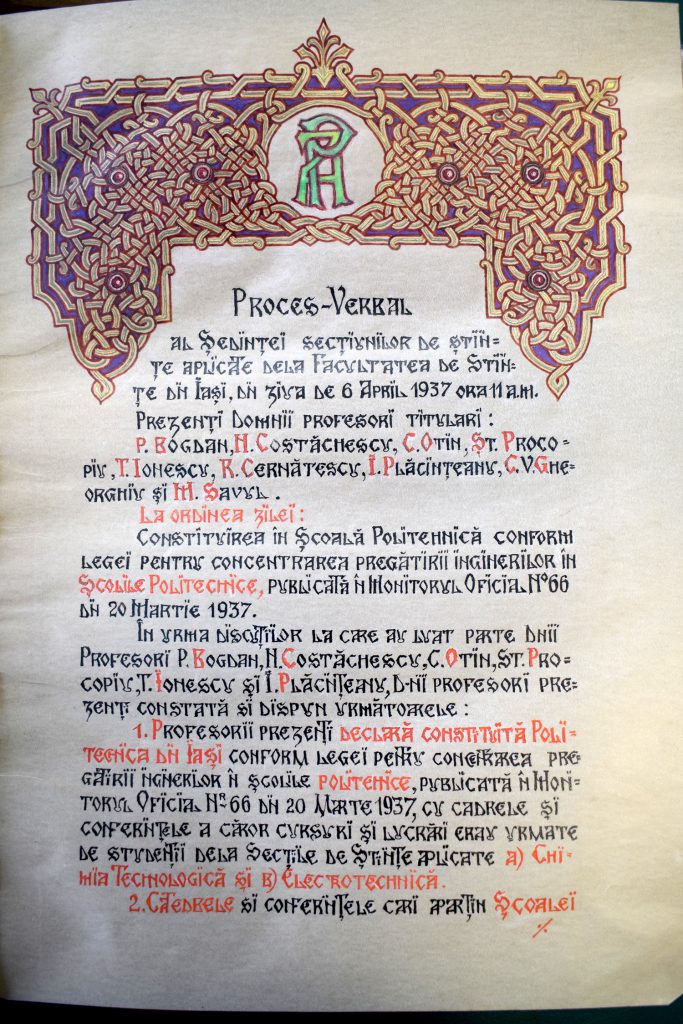 Proces-Verbal
al Ședinței secțiunilor de știin-
țe aplicate dela Facultatea de Stiin-
țe din Iași, din ziua de 6 April 1937 ora 11 a.m.
Prezenți Domnii profesori titulari :
P. Bogdan, N. Costăchescu, C. Otin, Șt. Proco-
piu, T. Ionescu, R. Cernătescu, I. Plăcințeanu, C.V. Ghe-
orghiu și M. Savul.
La ordinea zilei :
Constituirea în Școală Politehnică conform
legei pentru concentrarea pregătirii inginerilor în
Școlile Politecnice, publicată în Monitorul Oficial No 66
din 20 Martie 1937.
În urma discuțiilor la care au luat parte Dnii
Profesori P. Bogdan, N. Costăchescu, C. Otin, Șt. Pro-
copiu, T. Ionescu și I. Plăcințeanu, D-nii profesori pre-
zenți constată si dispun următoarele :
1. Profesorii prezenți declară constituită Poli-
tecnica din Iași conform legei pentru concentrarea pre-
gătirii inginerilor în școlile politenice, publicată în Moni-
torul Oficial No. 66 din 20 Martie 1937, cu cadrele și
conferințele a căror cursuri și lucrări erau urmate
de studenții dela Secțiile de Științe aplicate a) Chi-
mia Technologică si b) Electrotechnică.
2. Catedrele si conferințele cari aparțin Școalei
./.